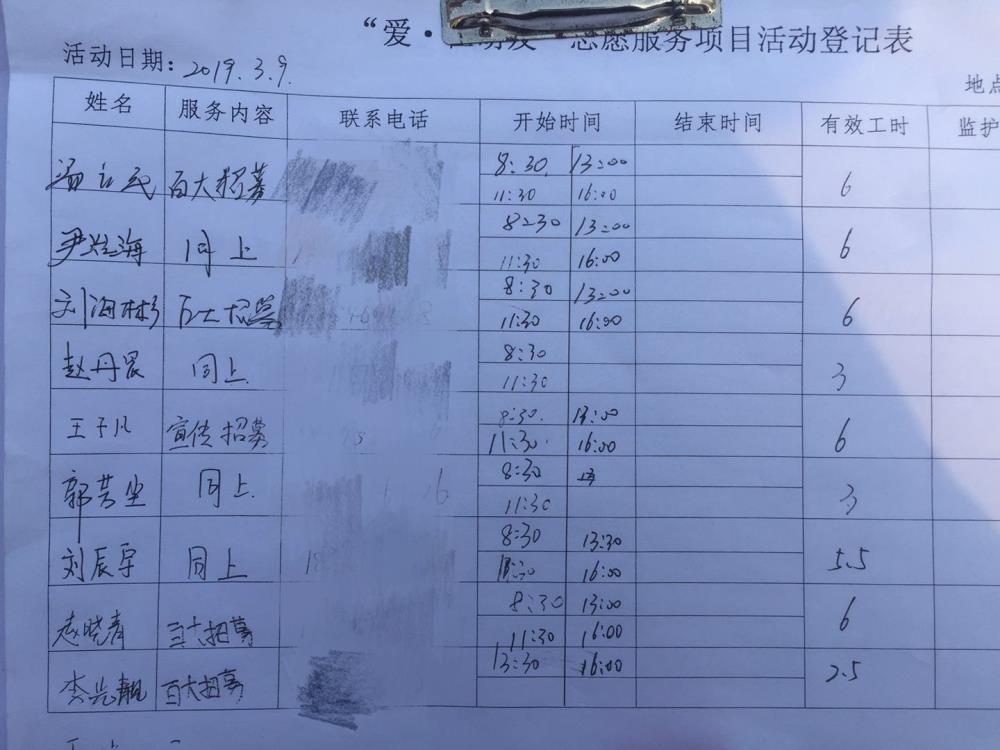 “爱· 志愿服务项目活动登记表
活动日期：2019.3.9.
地点
姓名 服务内容 联系电话 开始时间 结束时间 有效工时 监护
汤立民 百大招募 8:30 13:00 6
11:30 16:00
尹 海 同上 8:30 13:00 6
11:30 16:00
刘海彬 百大招募 8:30 13:00 6
11:30 16:00
赵丹晨 同上 8:30 3
11:30
王子凡 宣传招募 8:30 13:00 6
11:30 16:00
郭芳 同上 8:30 3
11:30
刘辰宇 同上 8:30 13:30 5.5
11:30 16:00
赵晓青 百大招募 8:30 13:00 6
11:30 16:00
李光靓 百大招募 13:30 16:00 2.5